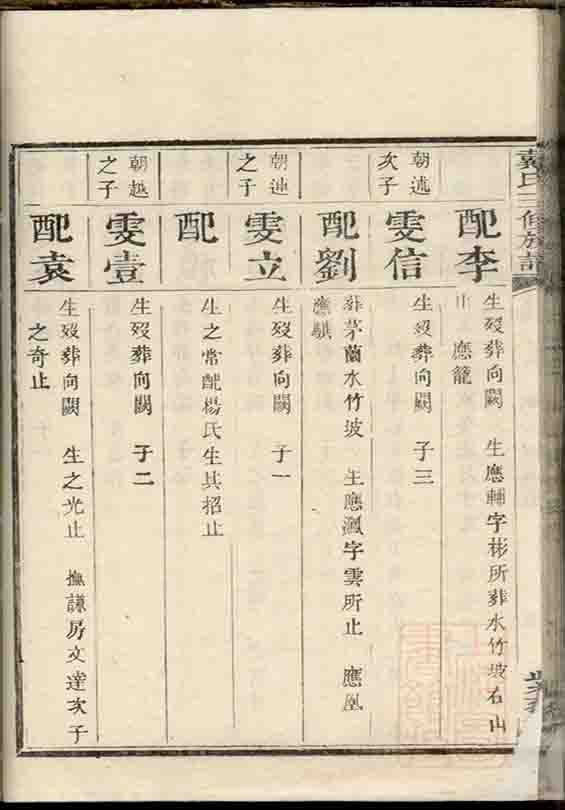 戴氏三修族譜
配李
生歿葬向闕 生應輔字彬所葬水竹坡右山
止 應龍
朝述
次子
雯信
生歿葬向闕 子三
配劉
葬茅蘭水竹坡 生應鳳字雲所止 應凰
應騏
朝連
之子
雯立
生歿葬向闕 子一
配
生之常配楊氏生其招止
朝越
之子
雯壹
生歿葬向闕 子二
配袁
生歿葬向闕 生之光止 撫謙房文達次子
之奇止